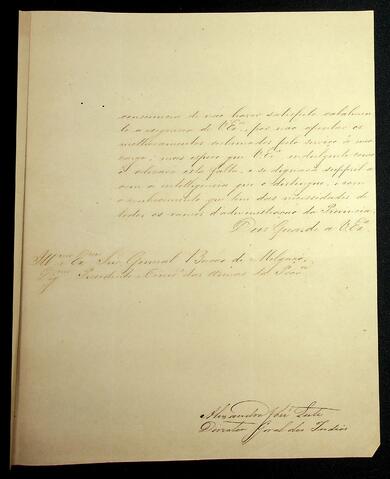 consciencia de não haver satisfeito cabalmen-
te a exigencia de VEx.ª, por não apontar os
melhoramentos reclamados pelo serviço á meu
cargo; mas espero que VEx.ª indulgente como
é relevará esta falta, e se dignará suppril-a
com a intelligencia que o distingue, e com
o conhecimento que tem das necessidades de
todos os ramos d'administração da Provincia.
Deos Guarde a VEx.ª
Ill.mo Ex.mo Snr. General Barão de Melgaço,
Dig.mo Presidente das Armas da Prov.ª
Alexandre José Leite
Director Geral dos Indios